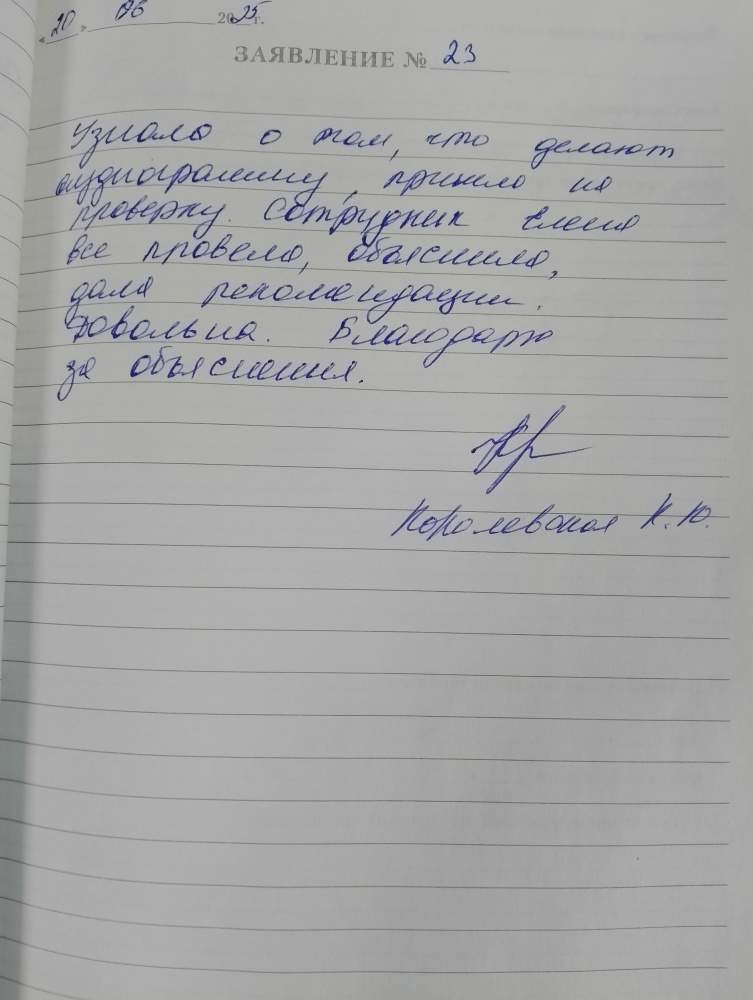 « 20 » 06 2025 г.
ЗАЯВЛЕНИЕ № 23
Узнала о том, что делают
аудиограмму, пришла на
проверку. Сотрудник Елена
все провела, объяснила,
дала рекомендации.
Довольна. Благодарю
за объяснения.
Королевская К.Ю.